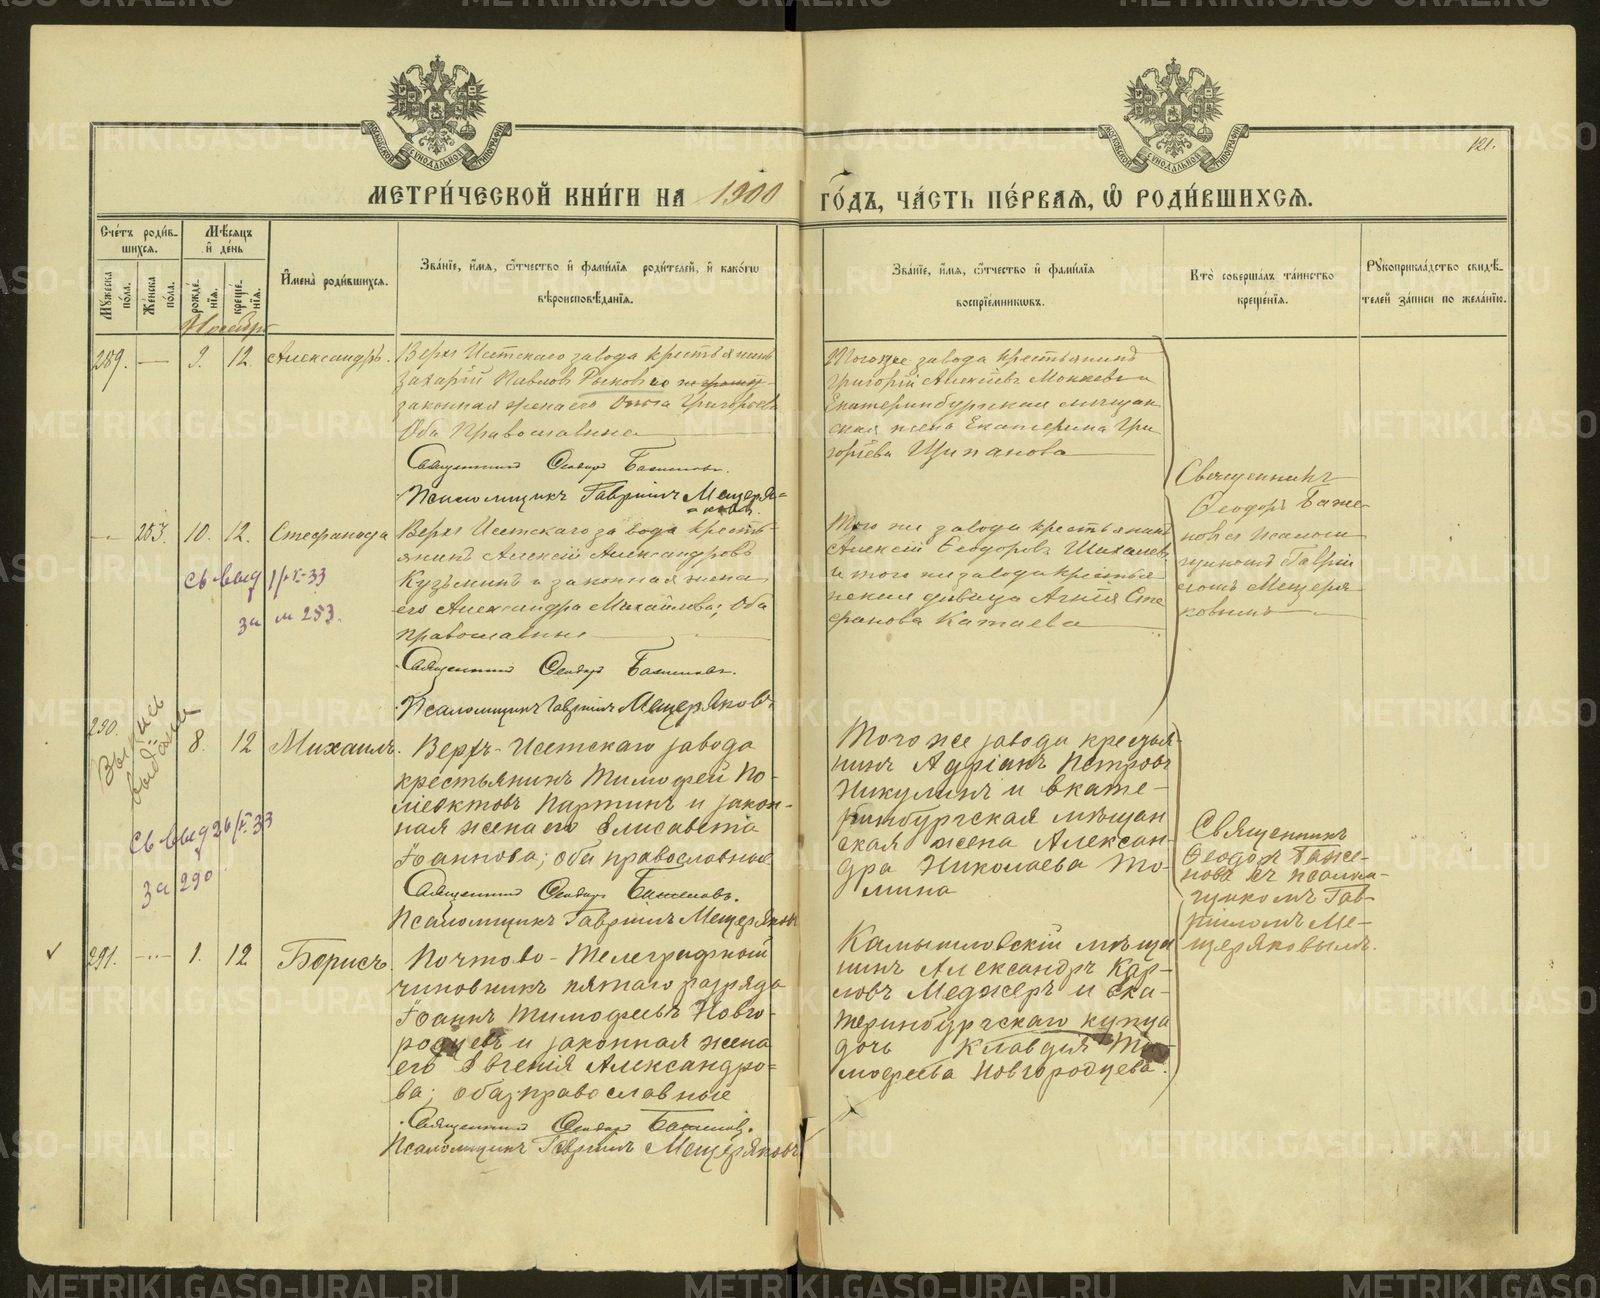 МОСКОВСКОЙ СѴНОДАЛЬНОЙ ТИПОГРАФІИ
МОСКОВСКОЙ СѴНОДАЛЬНОЙ ТИПОГРАФІИ
121.
МЕТРИ́ЧЕСКОЙ КНИ́ГИ НА 1900 ГО́ДЪ, ЧА́СТЬ ПЕ́РВАѦ, Ѡ РОДИ́ВШИХСѦ.
Сче́тъ роди́вшихся.
Му́жеска по́ла.
Же́нска по́ла.
Мѣ́сяцъ и де́нь
рожде́нїя.
креще́нїя.
Имена̀ роди́вшихся.
Зва́нїе, и́мя, ѻ́тчество и фами́лїя роди́телей, и како́гѡ вѣроисповѣ́данїя.
Зва́нїе, и́мя, ѻ́тчество и фами́лїя воспрїе́мникѡвъ.
Кто̀ соверша́лъ та́инство креще́нїя.
Рукоприкла́дство свидѣ́телей за́писи по жела́нїю.
Ноябрь
289. — 9. 12. Александръ.
Верхъ Исетскаго завода крестьянинъ
Захарій Павловъ Рыковъ и
законная жена его Ольга Григорьева
Оба Православные
Священникъ Ѳеодоръ Баженовъ.
Псаломщикъ Гавріилъ Мещеряковъ.
Того же завода крестьянинъ
Григорій Алексѣевъ Мокѣевъ и
Екатеринбургская мѣщан
ская жена Екатерина Гри
горьева Щипанова
Священникъ
Ѳеодоръ Баже
новъ съ псалом
щикомъ Гаврі
иломъ Мещеря
ковымъ
— 253. 10. 12. Стефанида
Верхъ Исетскаго завода кресть
янинъ Алексій Александровъ
Кузьминъ и законная жена
его Александра Михайлова; Оба
православные
Священникъ Ѳеодоръ Баженовъ.
Псаломщикъ Гавріилъ Мещеряковъ
Того же завода крестьянинъ
Алексій Ѳеодоровъ
и того же завода крестья
нская дѣвица Агнія Сте
фанова Катаева
съ выд
за № 253.
290. — 8. 12 Михаилъ.
Выпись
выдана
съ выд 26/
33
за 290
Верхъ-Исетскаго завода
крестьянинъ Тимофей По-
лиектовъ Партинъ и закон-
ная жена его Елисавета
Іоаннова; оба православные
Священникъ Ѳеодоръ Баженовъ.
Псаломщикъ Гавріилъ Мещеряковъ
Того же завода крестья-
нинъ Адріанъ Петровъ
Никулинъ и Екате-
ринбургская мѣщан
ская жена Алексан-
дра Николаева То-
мина
Священникъ
Ѳеодоръ Баже-
новъ съ псалом-
щикомъ Гав-
ріиломъ Ме-
щеряковымъ.
291. — 1. 12 Борисъ.
Почтово-Телеграфный
чиновникъ пятаго разряда
Іоаннъ Тимофеевъ Новго-
родцевъ и законная жена
его Евгенія Александро-
ва; оба православные
Священникъ Ѳеодоръ Баженовъ.
Псаломщикъ Гавріилъ Мещеряковъ
Камышловскій мѣща
нинъ Александръ Кар-
ловъ Меджеръ и Ека-
теринбургскаго купца
дочь Клавдія Ти-
мофеева Новгородцева.
METRIKI.GASO-URAL.RU